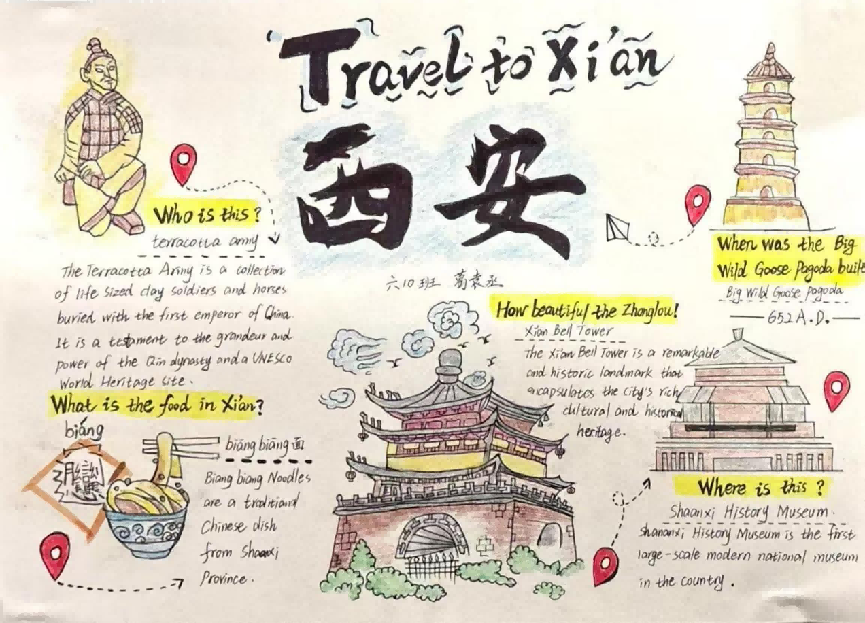 Travel to Xi'an
西安
六10班
Who is this?
terracotta army
The Terracotta Army is a collection
of life sized clay soldiers and horses
buried with the first emperor of China.
It is a testament to the grandeur and
power of the Qin dynasty and a UNESCO
World Heritage Site.
What is the food in Xi'an?
biáng
biāng biāng 面
Biang biang Noodles
are a traditional
Chinese dish
from Shaanxi
Province.
How beautiful the Zhonglou!
Xian Bell Tower
The Xian Bell Tower is a remarkable
and historic landmark that
encapsulates the city's rich
cultural and historical
heritage.
When was the Big
Wild Goose Pagoda built
Big Wild Goose pagoda
652 A.D.
Where is this?
Shaanxi History Museum.
Shananxi History Museum is the first
large-scale modern national museum
in the country.